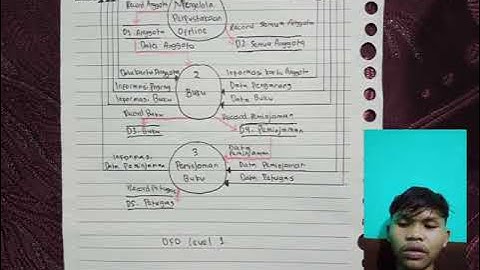 Record Anggota
Mengelola
Perpustakaan
Offline
Record Semua Anggota
D1. Anggota
D2. Semua Anggota
Data Anggota
Data kartu Anggota
2
Informasi kartu Anggota
Buku
Data Pengarang
Informasi Buku
Data Buku
Record Buku
Record Peminjaman
D3. Buku
D4. Peminjaman
Data
Peminjaman
3
Informasi
Data Peminjaman
Peminjaman
Buku
Data Peminjaman
Data Petugas
Record Petugas
D5. Petugas
DFD level 1